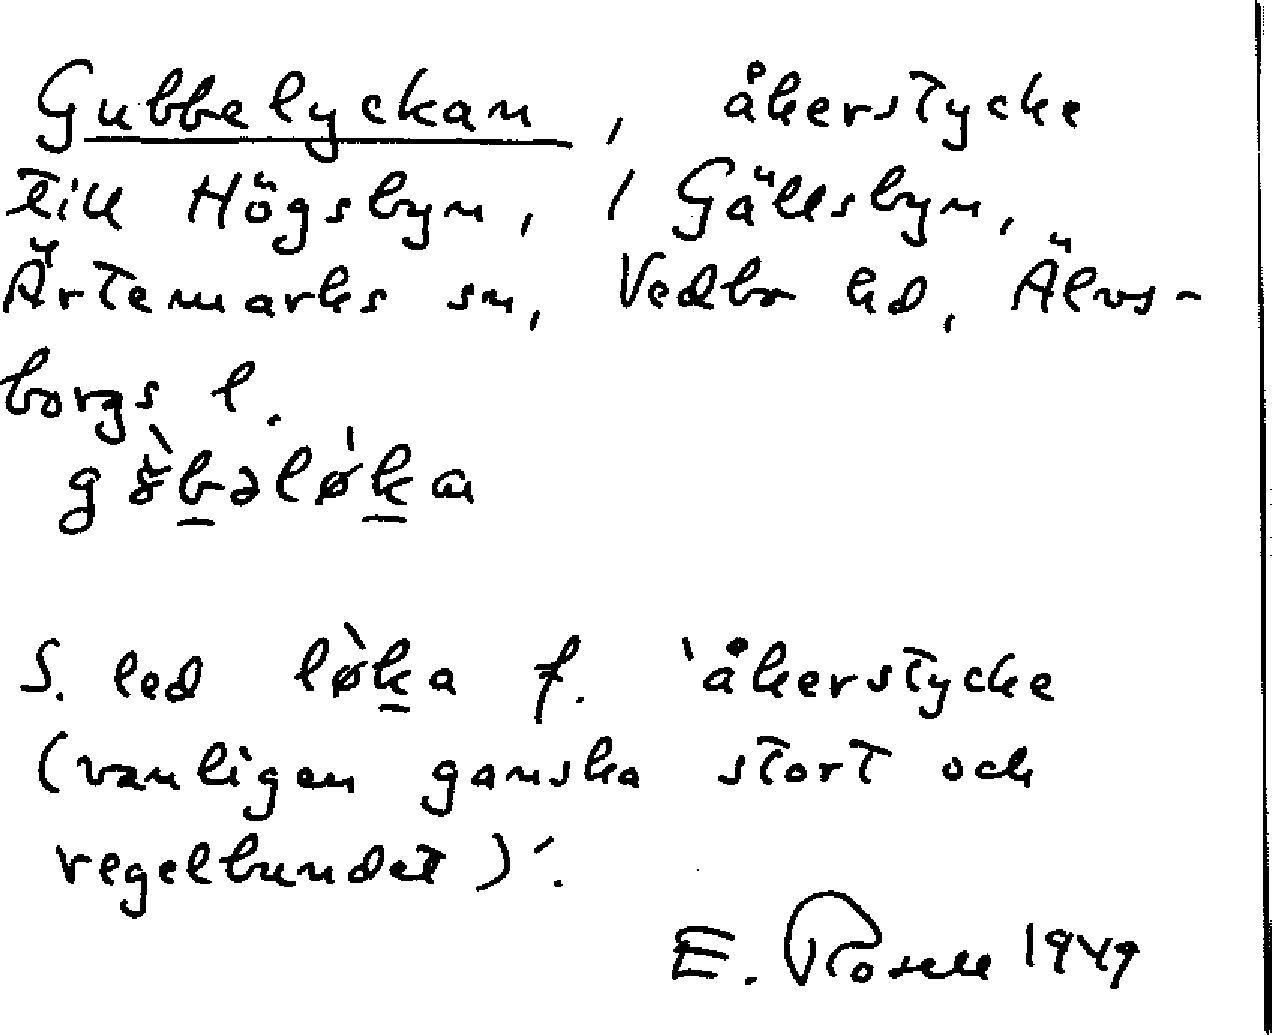 Gubbelyckan, åkerstycke
till Högsbyn, i Gällsbyn,
Ärtemarks sn, Vedbo hd, Älvs-
borgs l.
S. led lø̀ka f. 'åkerstycke
(vanligen ganska stort och
regelbundet)'.
E. Rosell 1949